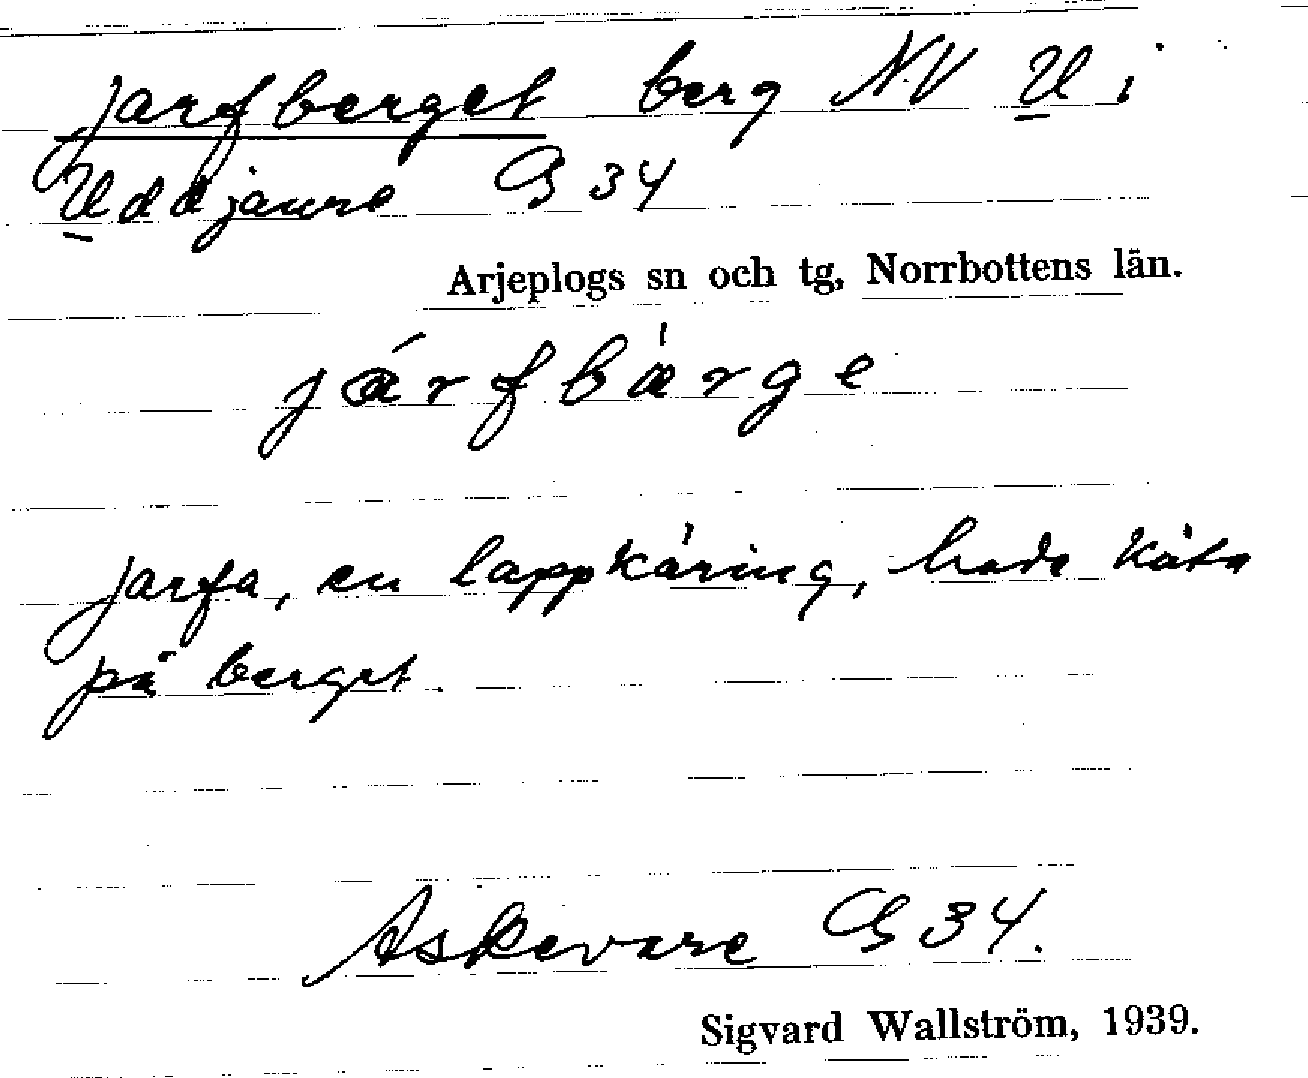 Jarfberget berg NV U i
Uddjaure G 34
Arjeplogs sn och tg, Norrbottens län.
járfbærge
Jarfa, en lappkäring, hade kåta
på berget.
Askevare G 34.
Sigvard Wallström, 1939.